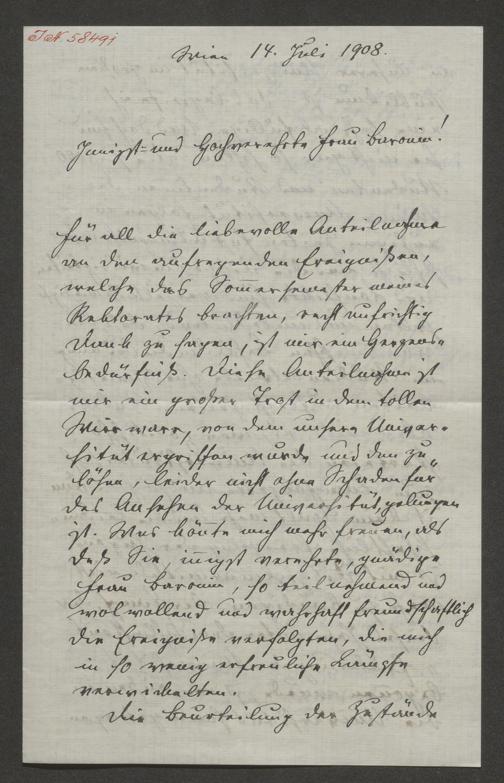 IN 58491
Wien 14. Juli 1908.
Innigst- und Hochverehrte Frau Baronin!
Für all die liebevolle Anteilnahme
an den aufregenden Ereignißen,
welche das Sommersemester meines
Rektorates brachten, recht aufrichtig
Dank zu sagen, ist mir ein Herzens-
bedürfniß. Diese Anteilnahme ist
mir ein großer Trost in dem tollen
Wirrwarr, von dem unsere Univer-
sität ergriffen wurde und den zu
lösen, leider nicht ohne Schaden für
das Ansehen der Universität, gelungen
ist. Was könte mich mehr freuen, als
daß Sie, innigst verehrte, gnädige
Frau Baronin, so teilnehmend und
wolwollend und wahrhaft freundschaftlich
die Ereigniße verfolgten, die mich
in so wenig erfreuliche Kämpfe
verwickelten.
Die Beurteilung der Zustände